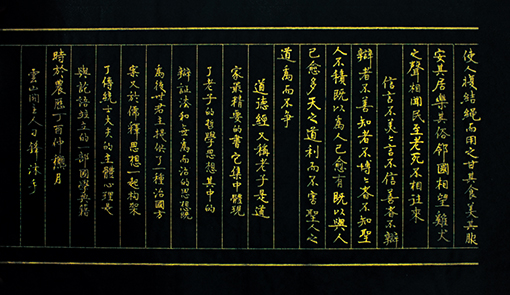 使人復結繩而用之甘其食美其服
安其居樂其俗鄰國相望雞犬
之聲相聞民至老死不相往來
信言不美々言不信善者不辯
辯者不善知者不博々者不知聖
人不積既以為人己愈有既以與人
己愈多天之道利而不害聖人之
道為而不争
道德經又稱老子是道
家最精要的書它集中體現
了老子的哲學思想其中的
辯証法和無為而治的思想既
為後世君主提供了一種治國方
案又於儒釋思想一起构架
了傳統士大夫的主體心理是
與論語並立的一部國學典籍
時於農歷丁酉仲月
雲山閒主人